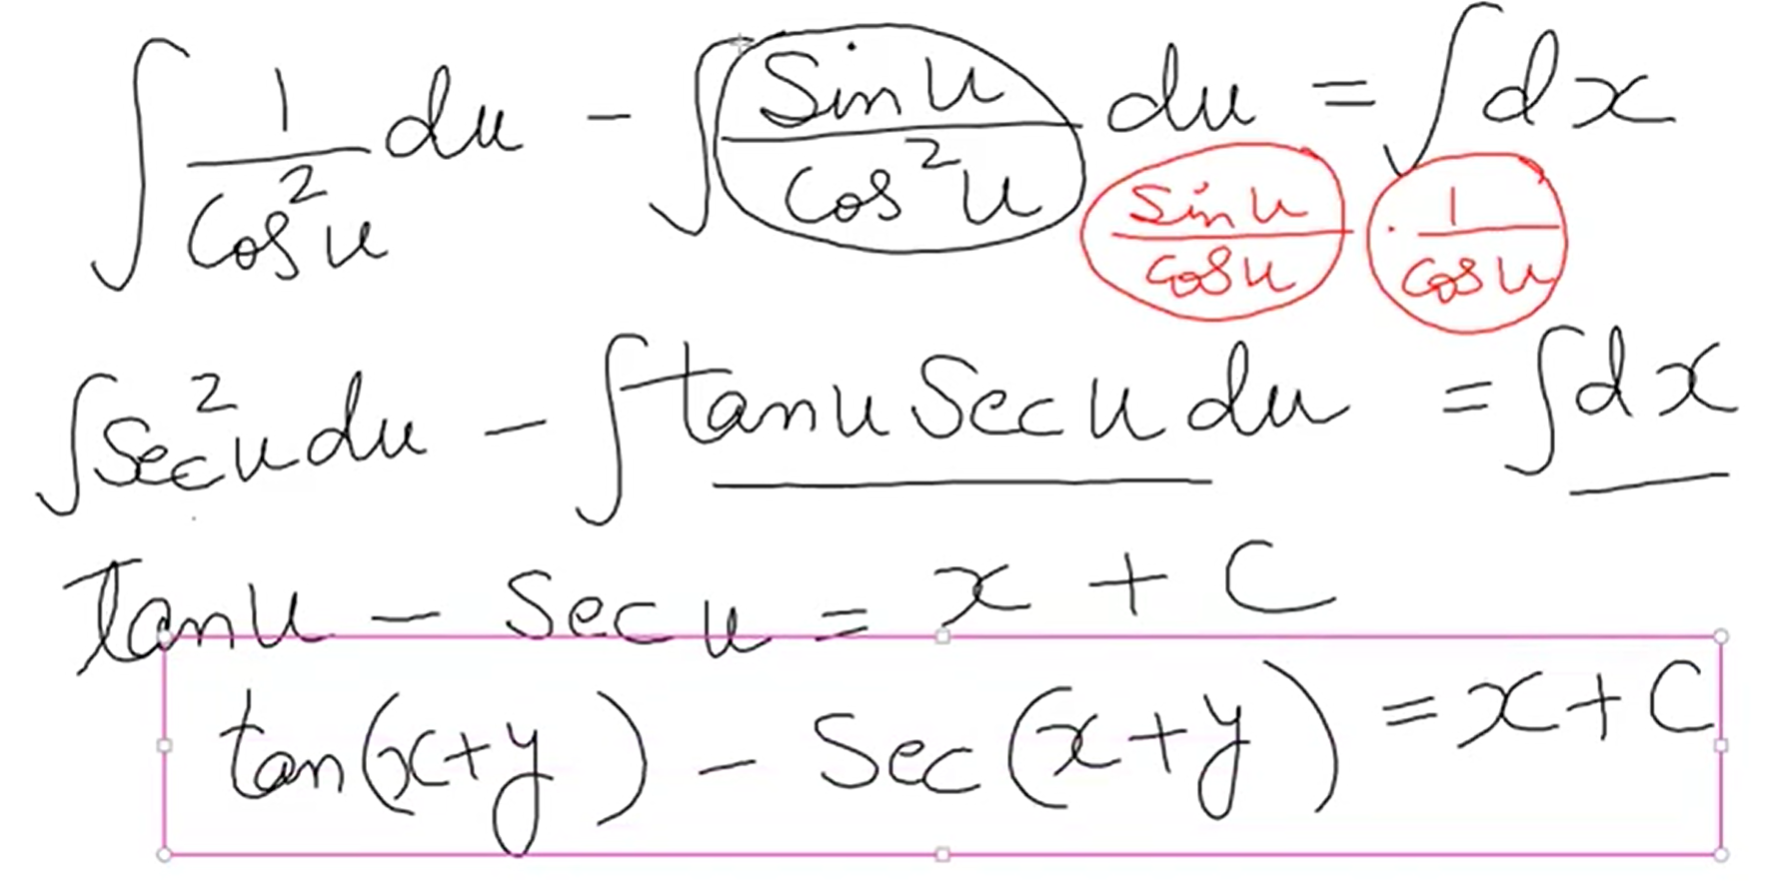 ∫ 1/cos²u du - ∫ sin u/cos²u du = ∫ dx
sin u/cos u · 1/cos u
∫ sec²u du - ∫ tan u sec u du = ∫ dx
tan u - sec u = x + C
tan(x+y) - sec(x+y) = x + C